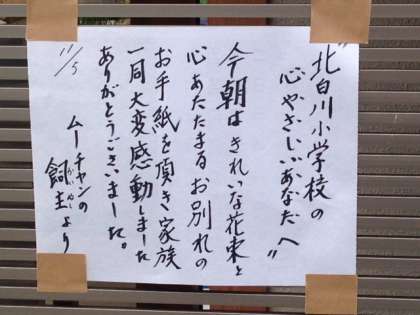 "北白川小学校の
心やさしいあなたへ"
今朝はきれいな花束と
心あたたまるお別れの
お手紙を頂き家族
一同大変感動しました
ありがとうございました。
ムーチャンの
飼主より
かいぬし
11/5